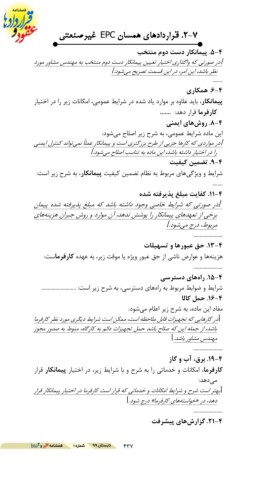 فصلنامه
عقود و قراردادها
۷-۲. قراردادهای همسان EPC غیرصنعتی
۴-۵. پیمانکار دست دوم منتخب
[در صورتی که واگذاری اختیار تعیین پیمانکار دست دوم منتخب به مهندس مشاور مورد
نظر باشد، این امر، در این قسمت تصریح می‌شود.]
۴-۶. همکاری
پیمانکار، باید علاوه بر موارد یاد شده در شرایط عمومی، امکانات زیر را در اختیار
کارفرما قرار دهد: .......
۴-۸. روش‌های ایمنی
این ماده شرایط عمومی، به شرح زیر اصلاح می‌شود:
[در مواردی که کارها جزیی از طرح بزرگتری است و پیمانکار عملاً نمی‌تواند کنترل ایمنی
را در اختیار داشته باشد، این ماده به تناسب اصلاح می‌شود.]
۴-۹. تضمین کیفیت
شرایط و ویژگی‌های مربوط به نظام تضمین کیفیت پیمانکار، به شرح زیر است:
۴-۱۱. کفایت مبلغ پذیرفته شده
[در صورتی که شرایط خاصی وجود داشته باشد که مبلغ پذیرفته شده پیمان
برخی از تعهدهای پیمانکار را پوشش ندهد، آن موارد و روش جبران هزینه‌های
مربوط، درج می‌شود.]
۴-۱۳. حق عبورها و تسهیلات
هزینه‌ها و عوارض ناشی از حق عبور ویژه یا موقت زیر، به عهده کارفرماست:
۴-۱۵. راه‌های دسترسی
شرایط و ضوابط مربوط به راه‌های دسترسی، به شرح زیر است: ....................
۴-۱۶. حمل کالا
مفاد این ماده، به شرح زیر اعلام می‌شود:
[در کارهایی که تجهیزات قابل ملاحظه است، ممکن است شرایط دیگری مورد نظر کارفرما
باشد، از جمله این که صلاح باشد حمل تجهیزات دائم به کارگاه، منوط به صدور مجوز
مهندس مشاور باشد.]
۴-۱۹. برق، آب و گاز
کارفرما، امکانات و خدماتی را به شرح و با شرایط زیر، در اختیار پیمانکار قرار
می‌دهد:
[بهتر است شرح و شرایط امکانات و خدماتی که قرار است کارفرما در اختیار پیمانکار قرار
دهد، در «خواسته‌های کارفرما» درج شود.]
۴-۲۱. گزارش‌های پیشرفت
۲۳۷